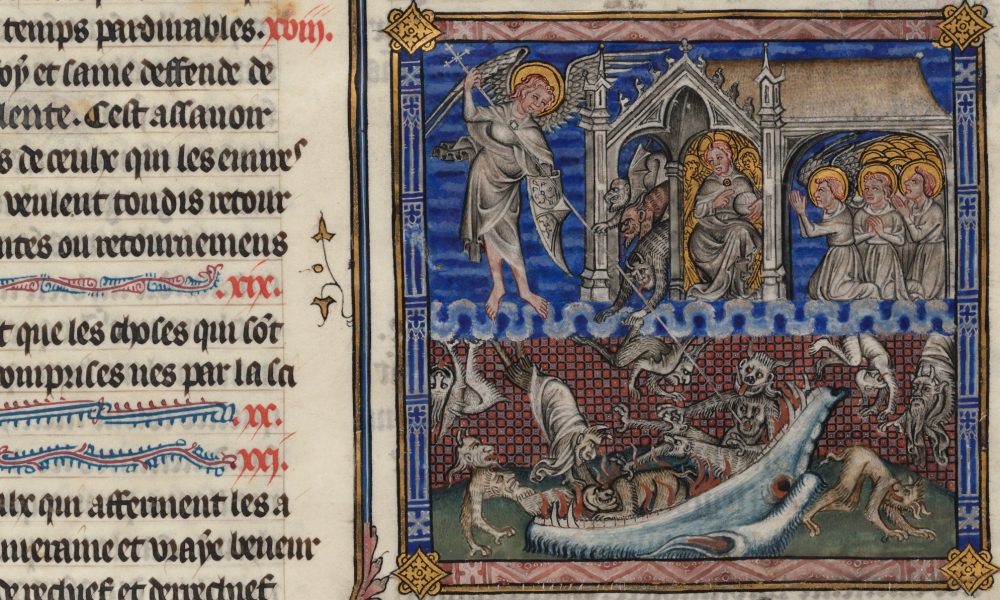 temps pardurables. xviij.
oy et saine deffende de
lente. Cest assauoir
s de ceulx qui les enure
veulent tousdis retour
ntes ou retournemens
.xix.
t que les choses qui sõt
omprises nes par la sci
xx.
xxj.
ulx qui afferment les a
uueraine et vraye beneur
derechief et derechief